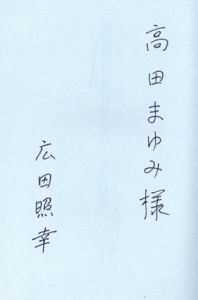 高田まゆみ様
広田照幸